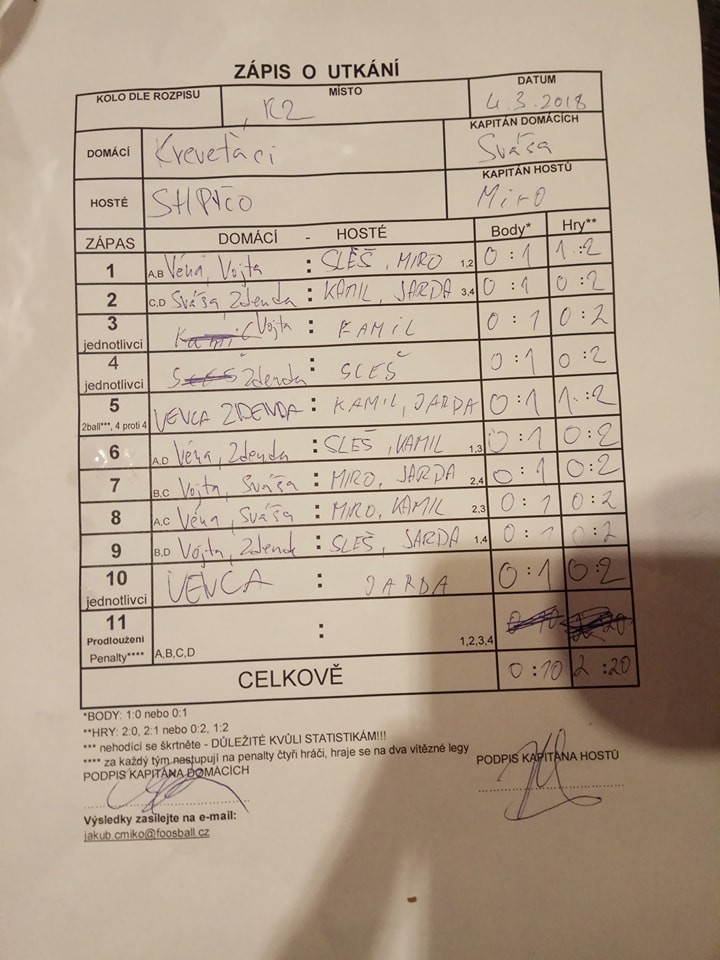 ZÁPIS O UTKÁNÍ
KOLO DLE ROZPISU MÍSTO DATUM
K2 4.3.2018
DOMÁCÍ Kreveťáci KAPITÁN DOMÁCÍCH
Sváša
HOSTÉ KAPITÁN HOSTŮ
Miro
ZÁPAS DOMÁCÍ - HOSTÉ Body* Hry**
1 A,B Véna, Vojta : SLEŠ, MIRO 1,2 0:1 1:2
2 C,D Sváša Zdenda : KAMIL, JARDA 3,4 0:1 0:2
3 jednotlivci Vojta : KAMIL 0:1 0:2
4 jednotlivci Zdenda : SLEŠ 0:1 0:2
5 2ball***, 4 proti 4 VENCA ZDENDA : KAMIL, JARDA 0:1 1:2
6 A,D Véna, Zdenda : SLEŠ, KAMIL 1,3 0:1 0:2
7 B,C Vojta, Sváša : MIRO, JARDA 2,4 0:1 0:2
8 A,C Véna, Sváša : MIRO, KAMIL 2,3 0:1 0:2
9 B,D Vojta, Zdenda : SLEŠ, JARDA 1,4 0:1 0:2
10 jednotlivci VENCA : JARDA 0:1 0:2
11 Prodloužení Penalty**** A,B,C,D : 1,2,3,4
CELKOVĚ 0:10 2:20
*BODY: 1:0 nebo 0:1
**HRY: 2:0, 2:1 nebo 0:2, 1:2
*** nehodící se škrtněte - DŮLEŽITÉ KVŮLI STATISTIKÁM!!!
**** za každý tým nastupují na penalty čtyři hráči, hraje se na dva vítězné legy
PODPIS KAPITÁNA DOMÁCÍCH PODPIS KAPITÁNA HOSTŮ
Výsledky zasílejte na e-mail:
jakub.cmiko@foosball.cz